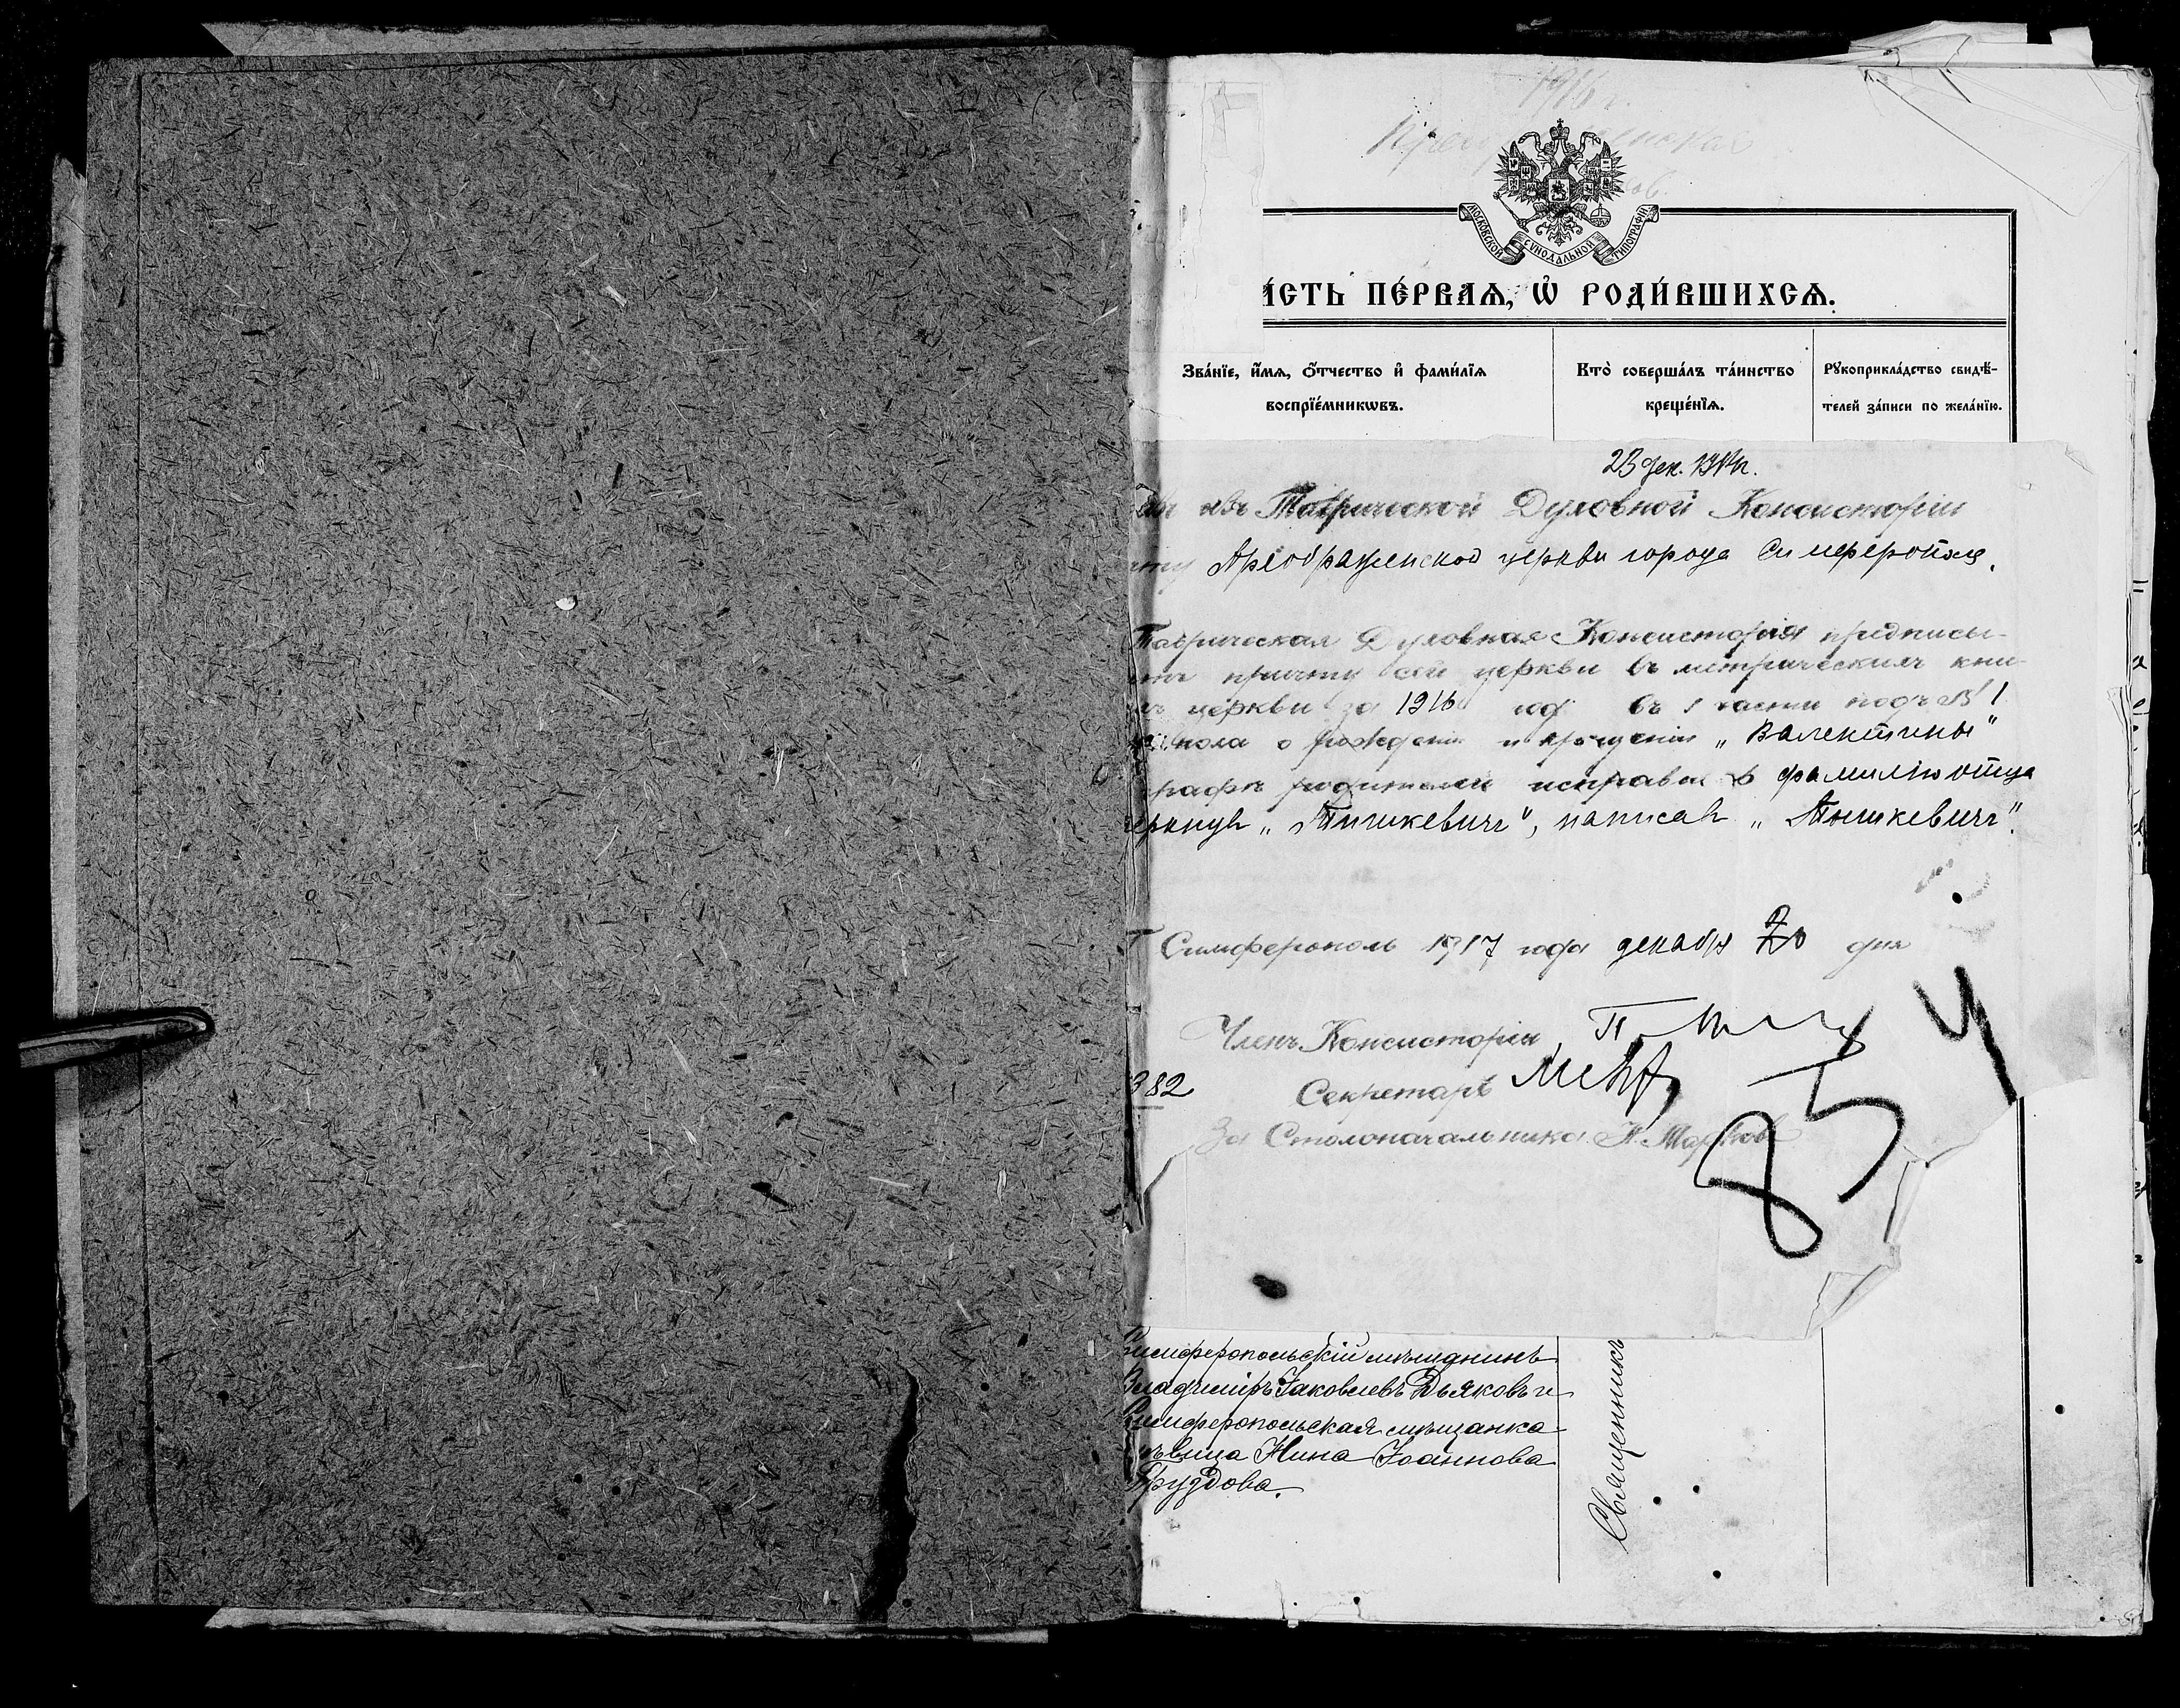 1916 г.
МОСКОВСКОЙ СѴНОДАЛЬНОЙ ТИПОГРАФІИ
ІСТЬ ПЕ́РВАѦ, Ѡ҆ РОДИ́ВШИХСѦ.
Зва́нїе, и҆́мѧ, ѻ҆́тчество и҆ фами́лїѧ
воспрїе́мникѡвъ.
Кто̀ соверша́лъ та́инство
креще́нїѧ.
Рꙋкоприкла́дство свидѣ́-
телей за́писи по жела́нїю.
23 дек. 1917 г.
изъ Таврической Духовной Консисторіи
Преображенской церкви города Симферополя.
Таврическая Духовная Консисторія предписы-
причту сей церкви въ метрическихъ кни-
церкви за 1916 год въ I части подъ № 1
пола о рожденіи и крещеніи „Валентины"
графѣ родителей исправить фамилію отца
черкнув „Тишкевичъ", написав „Тышкевичъ".
Г Симферополь 1917 года декабря 20 дня
Членъ Консисторіи
382
Секретарь
За Столоначальника Н. Марков
4
85
Симферопольскій мѣщанинъ
Владиміръ Іаковлевъ Дьяковъ и
Симферопольская мѣщанка
дѣвица Нина Іоаннова
Священникъ